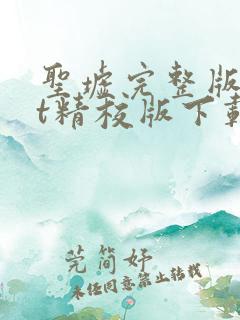 聖墟完整版
t精校版下載
莞簡妤
未经同意禁止转载